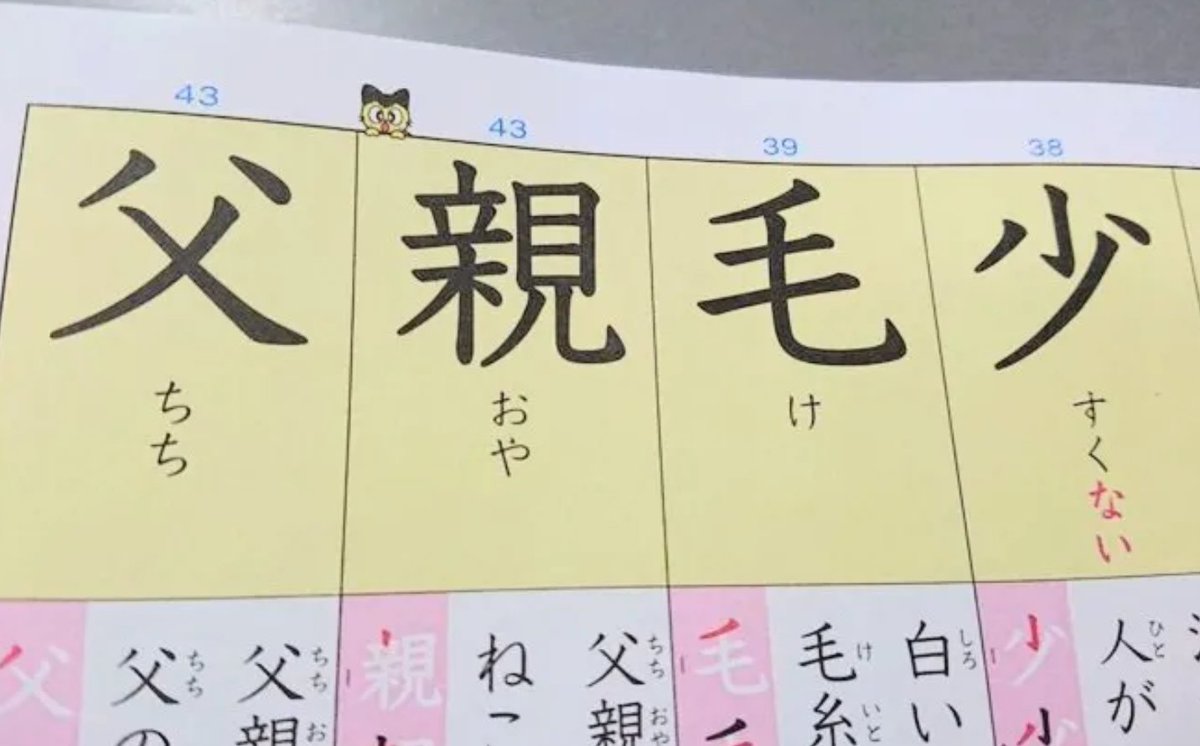 43 43 39 38
父 親 毛 少
ちち おや け すくない
父
父
ちち
父親
ちち お
親
ね
父親
ちち おや
毛
毛糸
け いと
白い
しろ
少
人が
ひと